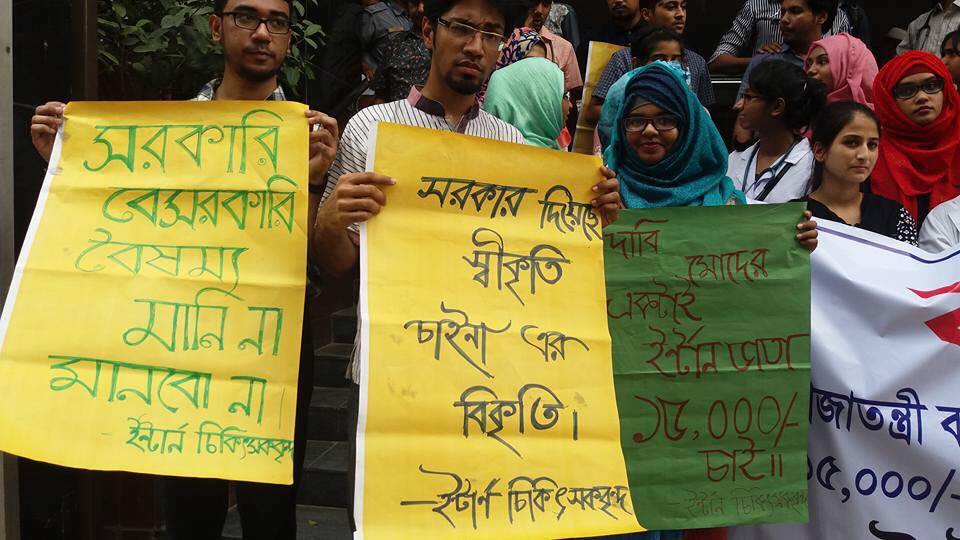 সরকারি
বেসরকারি
বৈষম্য
মানি না
মানবো না।
- ইন্টার্ন চিকিৎসকবৃন্দ
সরকার দিয়েছে
স্বীকৃতি
চাইনা এর
বিকৃতি।
- ইন্টার্ন চিকিৎসকবৃন্দ
দাবি মোদের
একটাই
ইন্টার্ন ভাতা
১৫,০০০/-
চাই॥
ইন্টার্ন চিকিৎসকবৃন্দ
১৫,০০০/-